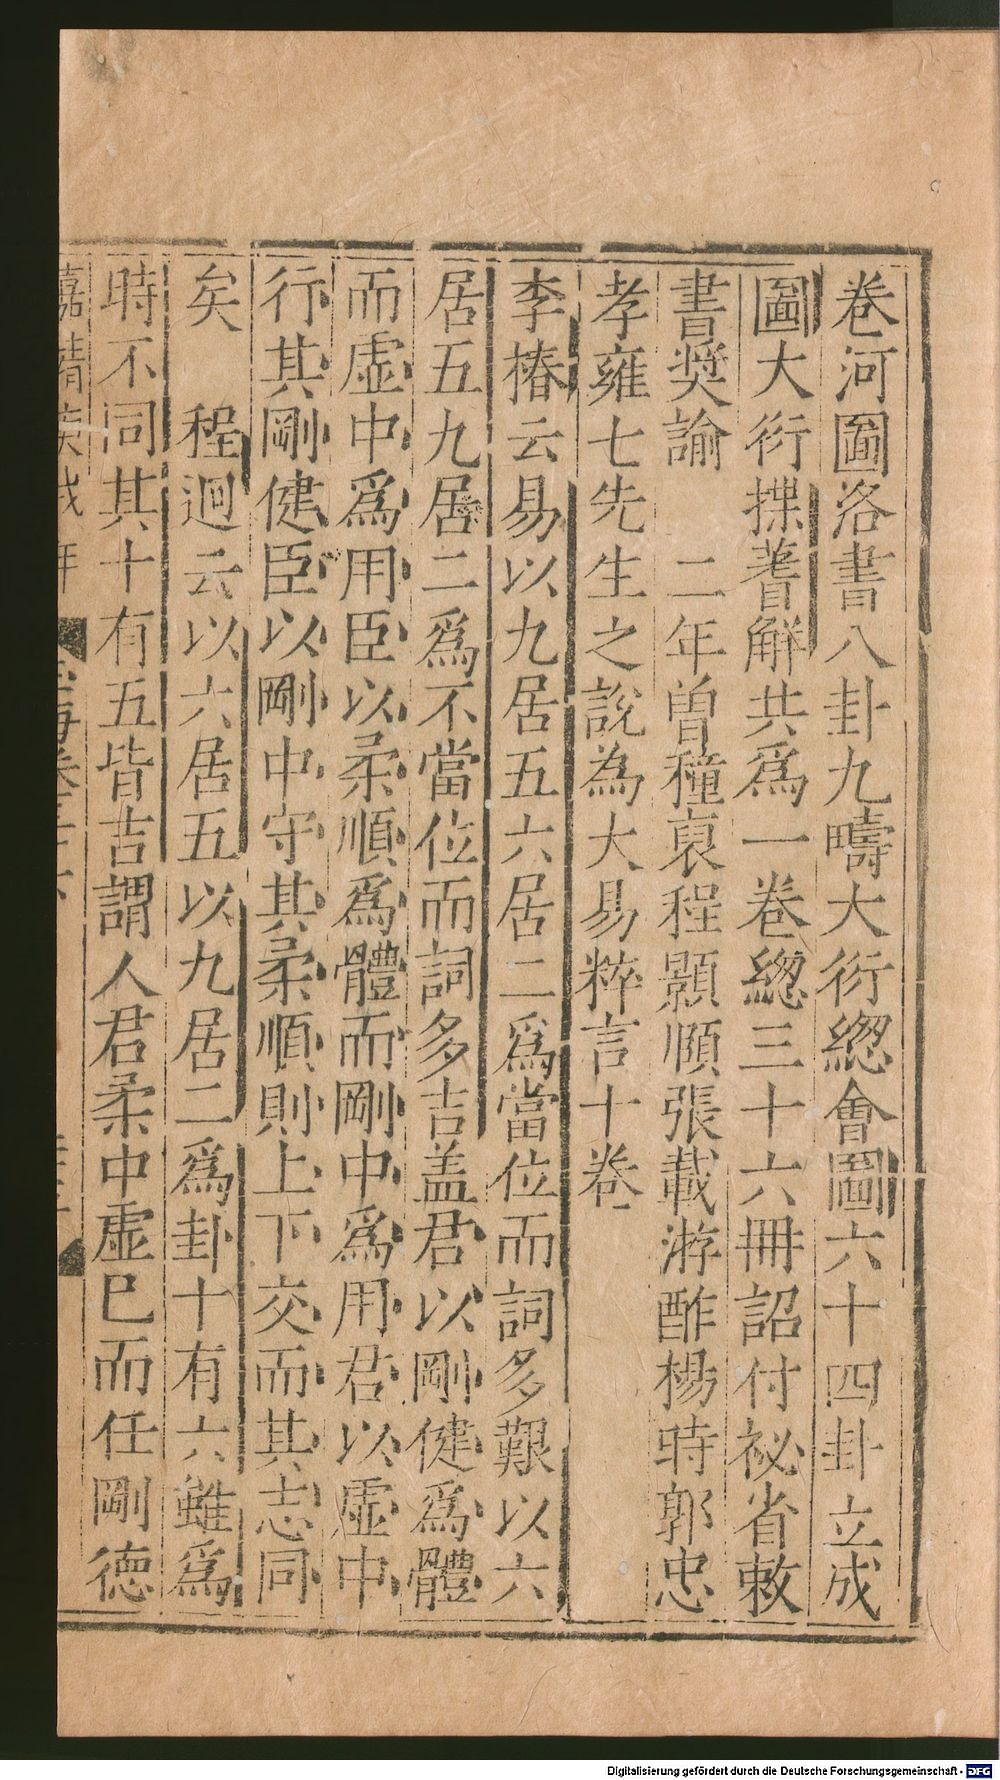 卷河圗洛書八卦九疇大衍緫會圗六十四卦立成
圗大衍揲蓍解共爲一卷緫三十六冊詔付祕省敕
書奬諭　二年曽穜裒程顥頤張載游酢楊時郭忠
孝雍七先生之說為大易粹言十卷
李椿云易以九居五六居二爲當位而詞多艱以六
居五九居二爲不當位而詞多吉盖君以剛健爲體
而虛中爲用臣以柔順爲體而剛中爲用君以虛中
行其剛健臣以剛中守其柔順則上下交而其志同
矣　程迥云以六居五以九居二爲卦十有六雖爲
時不同其十有五皆吉謂人君柔中虛巳而任剛德
嘉靖戊年
海卷三十六
Digitalisierung gefördert durch die Deutsche Forschungsgemeinschaft - DFG